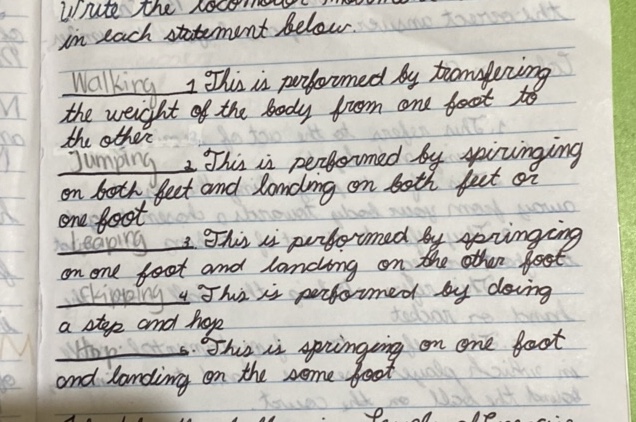 Write the locomotor
in each statement below.
Walking 1 This is performed by transfering
the weight of the body from one foot to
the other
Jumping 2 This is performed by spiringing
on both feet and landing on both feet or
one foot
Leaping 3. This is performed by springing
on one foot and landing on the other foot
Skipping 4 This is performed by doing
a step and hop
Hop 5. This is springing on one foot
and landing on the same foot